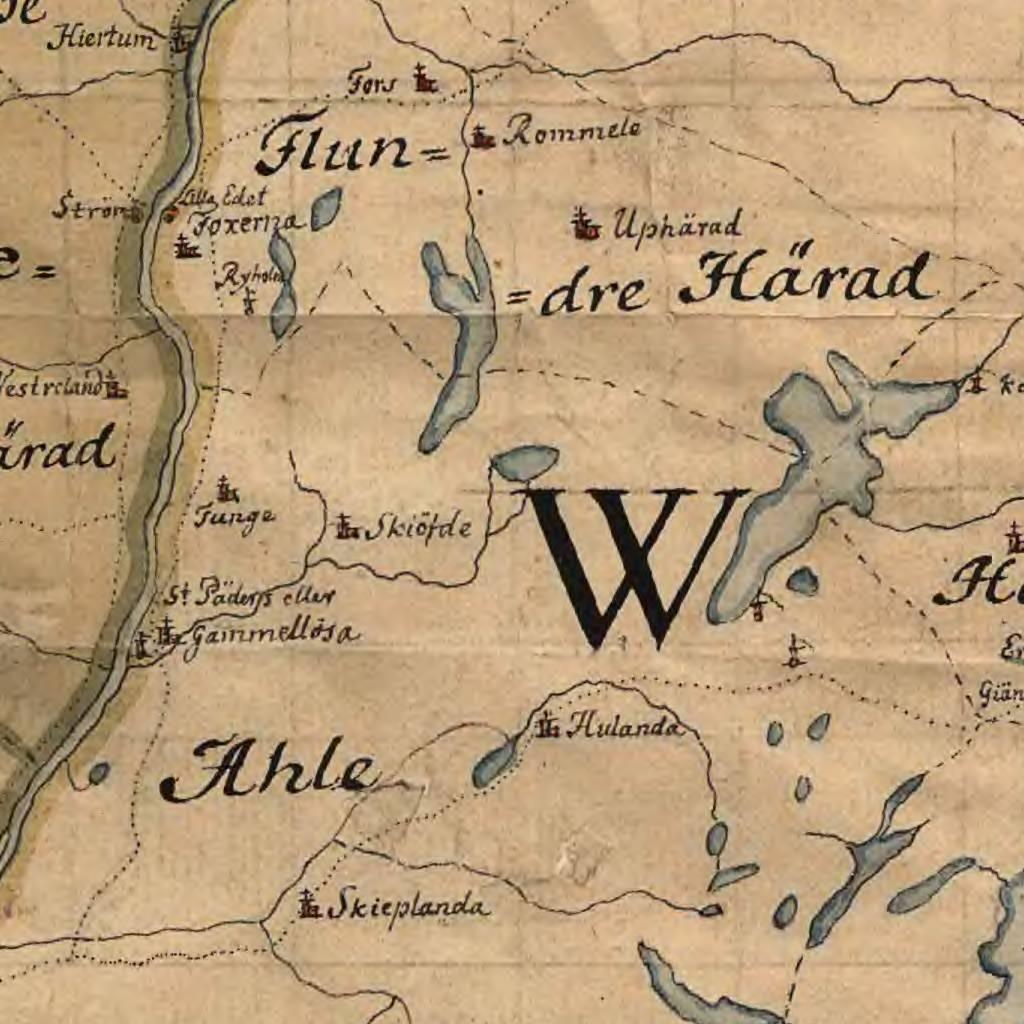 Hiertum
Fors
Rommele
Flun=
Ström
Lilla Edet
Foxerna
Uphärad
Ryholm
=dre Härad
Westreland
ärad
Tunge
Skiöfde
W
St Päders eller
Gammellösa
Hulanda
Ahle
Skieplanda